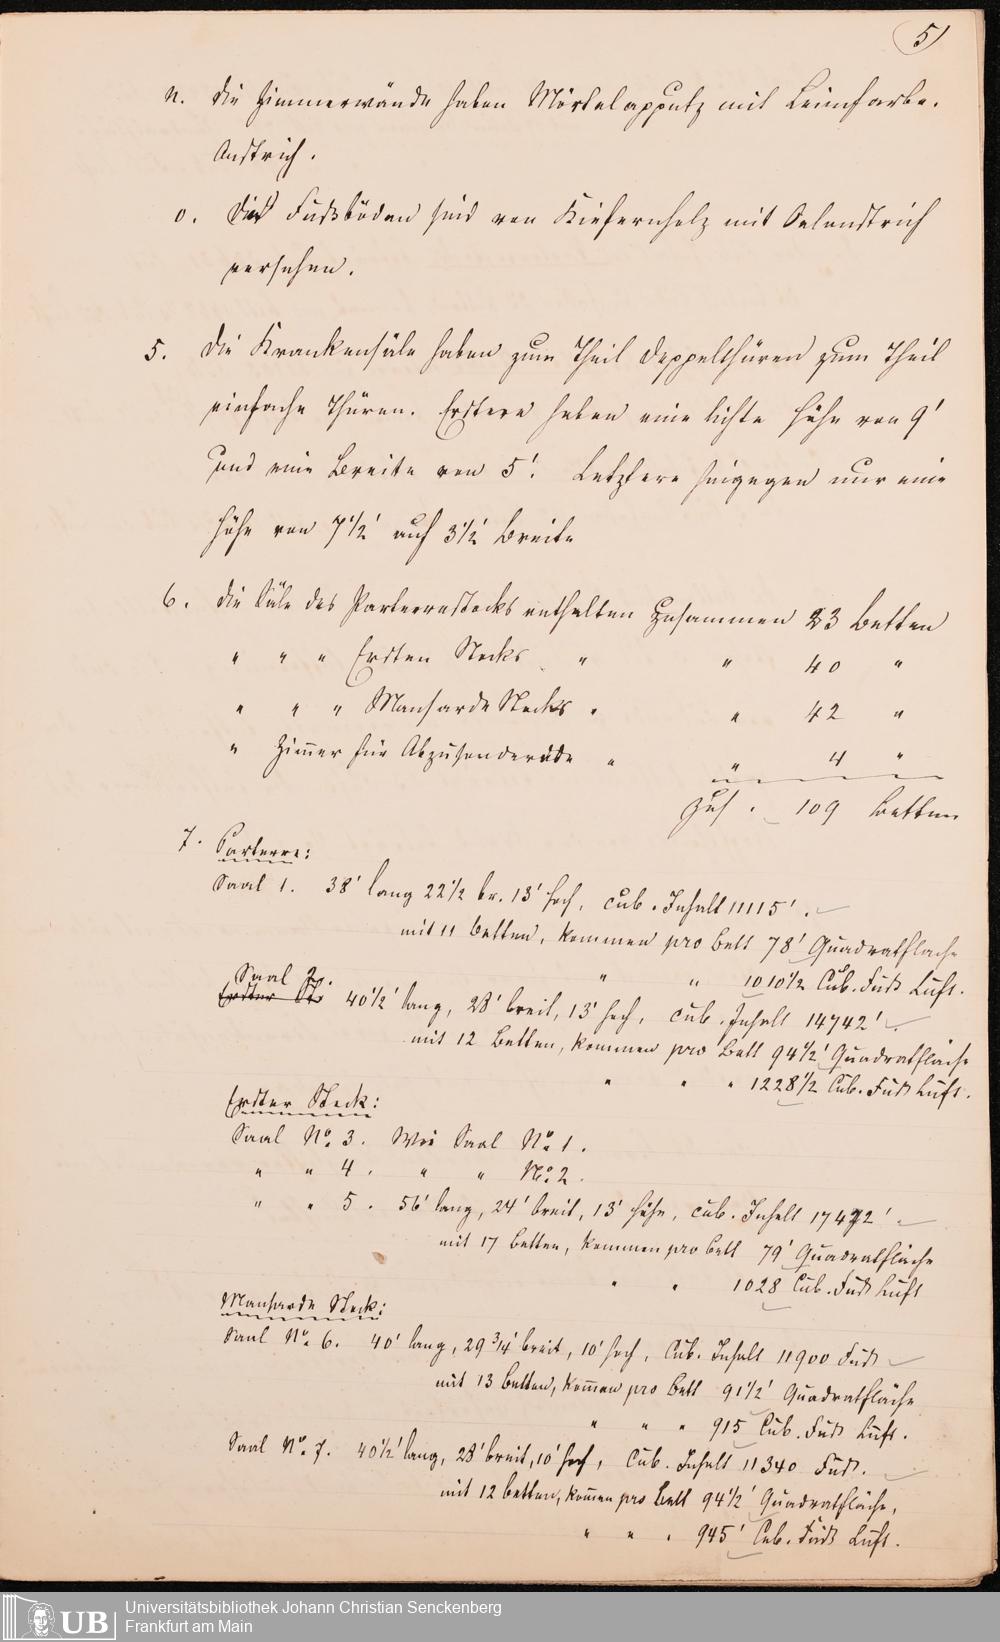 5)
n. Die Zimmerwände haben Mörtelapputz mit Leimfarbe.
Anstrich.
o. Die Fußböden sind von Kiefernholz mit Oelanstrich
versehen.
5. Die Krankensäle haben zum Theil Doppelthüren zum Theil
einfache Thüren. Erstere haben eine lichte Höhe von 9'
und eine Breite von 5'. Letztere hingegen nur eine
Höhe von 7 1/2' auf 3 1/2' Breite
6. Die Säle des Parterrestocks enthalten zusammen 23 Betten
" " " Ersten Stocks " " 40 "
" " " Mansarde Stocks " " 42 "
" Zimmer für Abzusondernde " " 4 "
Zus. 109 Betten
7. Parterre:
Saal 1. 38' lang 22 1/2 br. 13' hoch, cub. Inhalt 11115'.
mit 11 Betten, kommen pro Bett 78' Quadratflache
" " 1010 1/2 Cub. Fuß Luft.
Saal 2.
Erster St. 40 1/2' lang, 28' breit, 13' hoch, cub. Inhalt 14742'.
mit 12 Betten, kommen pro Bett 94 1/2' Quadratfläche
" " " 1228 1/2 Cub. Fuß Luft.
Erster Stock:
Saal No. 3. Wie Saal No. 1.
" " 4. " " No. 2.
" " 5. 56' lang, 24' breit, 13' Höhe, cub. Inhalt 17472'
mit 17 Betten, kommen pro Bett 79' Quadratfläche
" " 1028 Cub. Fuß Luft
Mansarde Stock:
Saal No. 6. 40' lang, 29 3/4' breit, 10' hoch, Cub. Inhalt 11900 Fuß
mit 13 Betten, kom̄en pro Bett 91 1/2' Quadratfläche
" " " 915 Cub. Fuß Luft.
Saal No. 7. 40 1/2' lang, 28' breit, 10' hoch, Cub. Inhalt 11340 Fuß.
mit 12 Betten, kom̄en pro Bett 94 1/2' Quadratfläche,
" " " 945' Cub. Fuß Luft.
UB Universitätsbibliothek Johann Christian Senckenberg
Frankfurt am Main